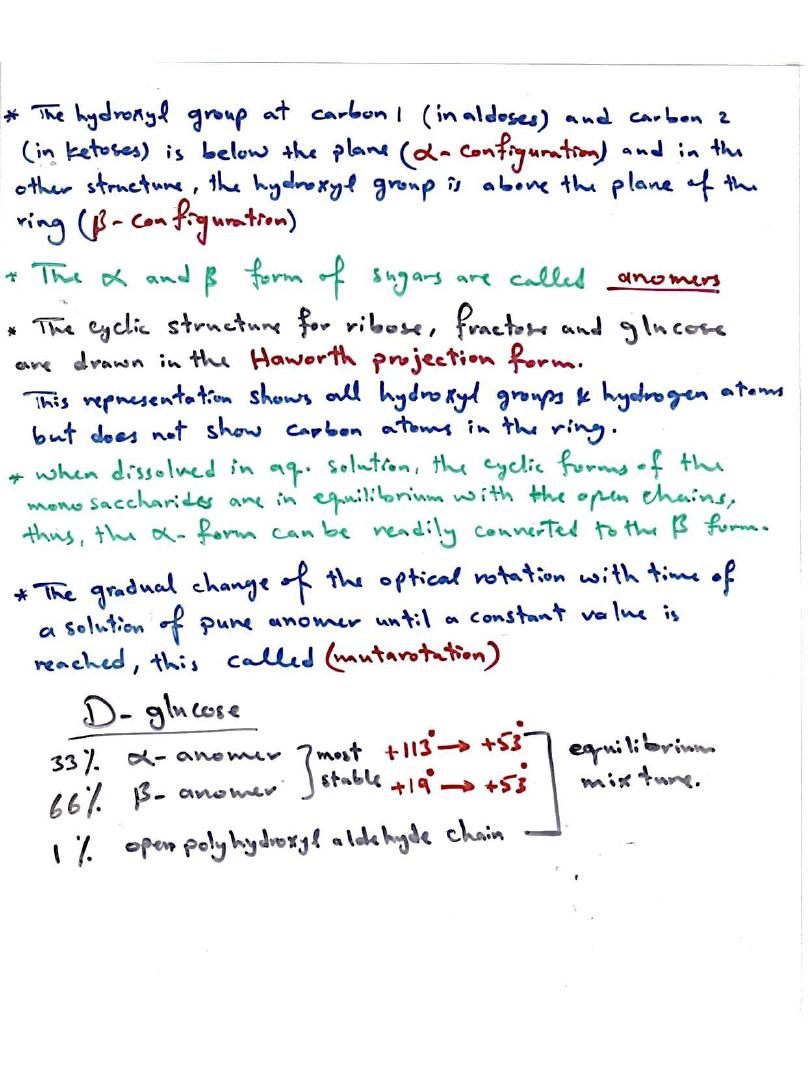 * The hydroxyl group at carbon 1 (in aldoses) and carbon 2
(in ketoses) is below the plane (α- configuration) and in the
other structure, the hydroxyl group is above the plane of the
ring (β- configuration)
* The α and β form of sugars are called anomers
* The cyclic structure for ribose, fructose and glucose
are drawn in the Haworth projection form.
This representation shows all hydroxyl groups & hydrogen atoms
but does not show carbon atoms in the ring.
* when dissolved in aq. solution, the cyclic forms of the
monosaccharides are in equilibrium with the open chains,
thus, the α- form can be readily converted to the β form.
* The gradual change of the optical rotation with time of
a solution of pure anomer until a constant value is
reached, this called (mutarotation)
D- glucose
33% α- anomer most +113° → +53° equilibrium
66% β- anomer stable +19° → +53° mixture.
1% open polyhydroxyl aldehyde chain